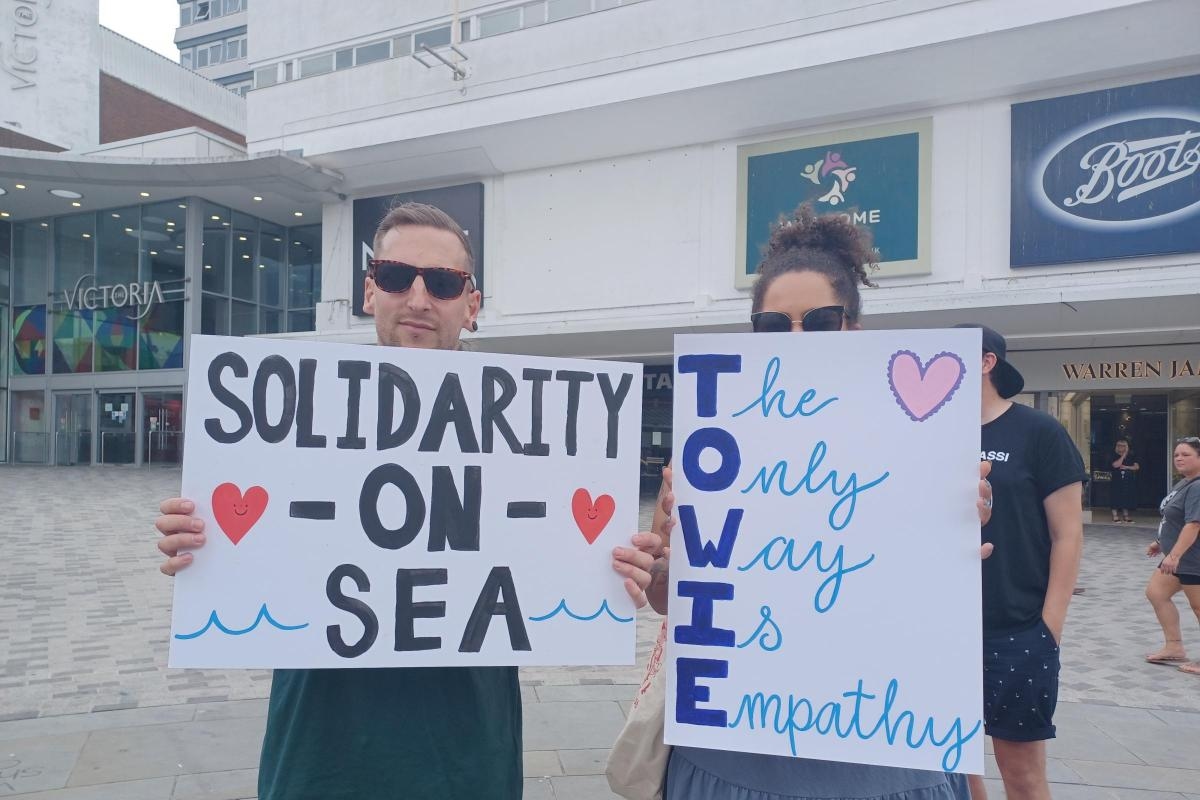 VICTORIA
Boots
WARREN JA
SOLIDARITY
- ON -
SEA
The
Only
Way
Is
Empathy
ASSI